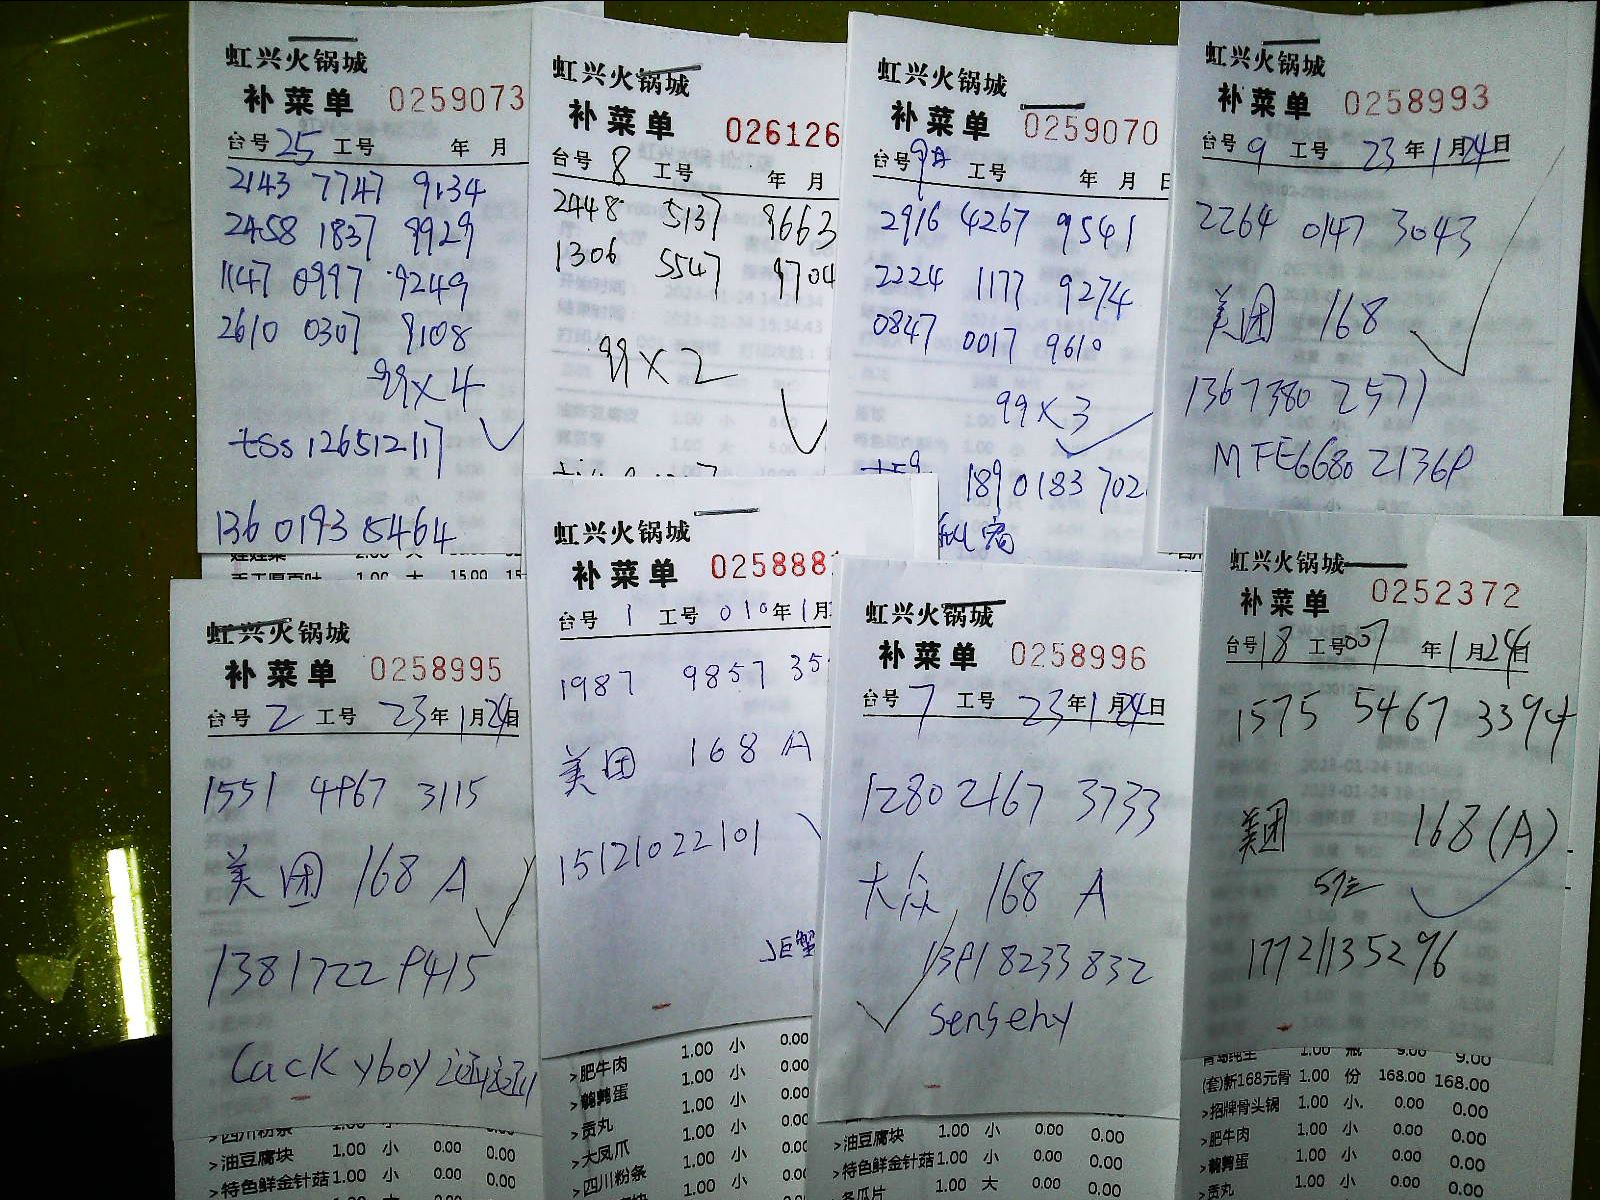 虹兴火锅城
补菜单 0259073
台号 25 工号 年 月
2143 7747 9134
2458 1837 9929
1147 0997 9249
2610 0307 9108
99×4
tss126512117
136 0193 5464
虹兴火锅城
补菜单 026126
台号 8 工号 年 月
2448 5137 9663
1306 5547 9704
99×2
虹兴火锅城
补菜单 0259070
台号 9A 工号 年 月 日
2916 4267 9541
2224 1177 9274
0847 0017 9610
99×3
189 0183 702
虹兴火锅城
补菜单 0258993
台号 9 工号 23年1月24日
2264 0147 3043
美团 168
1367380 2571
MFE66802136P
虹兴火锅城
补菜单 0258995
台号 2 工号 23年1月24日
1551 4967 3115
美团 168 A
1381722 9415
>油豆腐块 1.00 小 0.00 0.00
>特色鲜金针菇 1.00 小 0.00 0.00
虹兴火锅城
补菜单 025888
台号 1 工号 010年1月
1987 9857 35
美团 168 A
15121022101
巨蟹
>肥牛肉 1.00 小 0.00
>鹌鹑蛋 1.00 小 0.00
>贡丸 1.00 小 0.00
>大凤爪 1.00 小 0.00
>四川粉条 1.00 小 0.00
虹兴火锅城
补菜单 0258996
台号 7 工号 23年1月24日
1280 2167 3733
大众 168 A
13918233832
sensehy
>油豆腐块 1.00 小 0.00 0.00
>特色鲜金针菇 1.00 小 0.00 0.00
冬瓜片 1.00 大 0.00 0.00
虹兴火锅城
补菜单 0252372
台号 18 工号 007 年1月24日
1575 5467 3394
美团 168(A)
17721135296
青岛纯生 1.00 瓶 9.00 9.00
(套)新168元骨 1.00 份 168.00 168.00
>招牌骨头锅 1.00 小. 0.00 0.00
>肥牛肉 1.00 小 0.00 0.00
>鹌鹑蛋 1.00 小 0.00 0.00
>贡丸 1.00 小 0.00 0.00